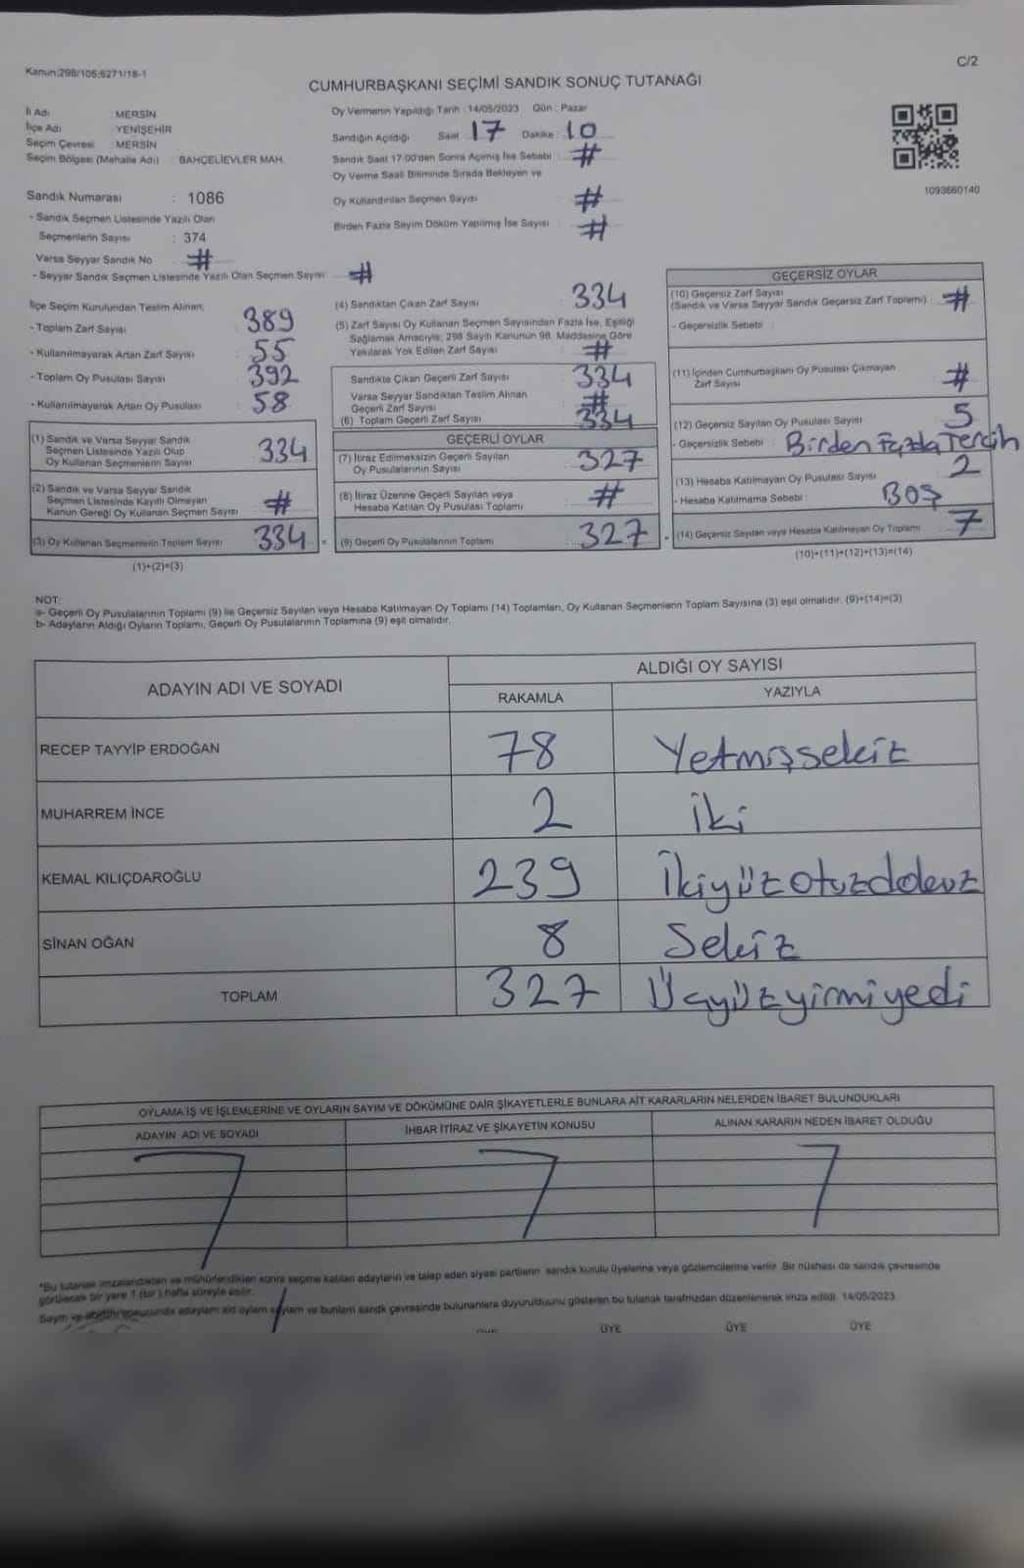 Kanun:298/105;6271/18-1
C/2
CUMHURBAŞKANI SEÇİMİ SANDIK SONUÇ TUTANAĞI
İl Adı : MERSİN
İlçe Adı : YENİŞEHİR
Seçim Çevresi : MERSİN
Seçim Bölgesi (Mahalle Adı) : BAHÇELİEVLER MAH.
Sandık Numarası : 1086
- Sandık Seçmen Listesinde Yazılı Olan
Seçmenlerin Sayısı : 374
Varsa Seyyar Sandık No #
- Seyyar Sandık Seçmen Listesinde Yazılı Olan Seçmen Sayısı #
Oy Vermenin Yapıldığı Tarih : 14/05/2023 Gün : Pazar
Sandığın Açıldığı Saat : 17 Dakika : 10
Sandık Saat 17:00'den Sonra Açılmış İse Sebebi : #
Oy Verme Saati Bitiminde Sırada Bekleyen ve
Oy Kullandırılan Seçmen Sayısı #
Birden Fazla Sayım Döküm Yapılmış İse Sayısı #
1093660140
İlçe Seçim Kurulundan Teslim Alınan;
- Toplam Zarf Sayısı 389
- Kullanılmayarak Artan Zarf Sayısı 55
- Toplam Oy Pusulası Sayısı 392
- Kullanılmayarak Artan Oy Pusulası 58
(1) Sandık ve Varsa Seyyar Sandık
Seçmen Listesinde Yazılı Olup
Oy Kullanan Seçmenlerin Sayısı 334
(2) Sandık ve Varsa Seyyar Sandık
Seçmen Listesinde Kayıtlı Olmayan
Kanun Gereği Oy Kullanan Seçmen Sayısı #
(3) Oy Kullanan Seçmenlerin Toplam Sayısı 334 =
(1)+(2)=(3)
(4) Sandıktan Çıkan Zarf Sayısı 334
(5) Zarf Sayısı Oy Kullanan Seçmen Sayısından Fazla İse, Eşitliği
Sağlamak Amacıyla; 298 Sayılı Kanunun 98. Maddesine Göre
Yakılarak Yok Edilen Zarf Sayısı #
Sandıkta Çıkan Geçerli Zarf Sayısı 334
Varsa Seyyar Sandıktan Teslim Alınan
Geçerli Zarf Sayısı #
(6) Toplam Geçerli Zarf Sayısı 334
GEÇERLİ OYLAR
(7) İtiraz Edilmeksizin Geçerli Sayılan
Oy Pusulalarının Sayısı 327
(8) İtiraz Üzerine Geçerli Sayılan veya
Hesaba Katılan Oy Pusulası Toplamı #
(9) Geçerli Oy Pusulalarının Toplamı 327 +
GEÇERSİZ OYLAR
(10) Geçersiz Zarf Sayısı
(Sandık ve Varsa Seyyar Sandık Geçersiz Zarf Toplamı) #
- Geçersizlik Sebebi :
(11) İçinden Cumhurbaşkanı Oy Pusulası Çıkmayan
Zarf Sayısı #
(12) Geçersiz Sayılan Oy Pusulası Sayısı 5
- Geçersizlik Sebebi : Birden Fazla Tercih
(13) Hesaba Katılmayan Oy Pusulası Sayısı 2
- Hesaba Katılmama Sebebi : BOŞ
(14) Geçersiz Sayılan veya Hesaba Katılmayan Oy Toplamı 7
(10)+(11)+(12)+(13)=(14)
NOT:
a- Geçerli Oy Pusulalarının Toplamı (9) ile Geçersiz Sayılan veya Hesaba Katılmayan Oy Toplamı (14) Toplamları, Oy Kullanan Seçmenlerin Toplam Sayısına (3) eşit olmalıdır. (9)+(14)=(3)
b- Adayların Aldığı Oyların Toplamı, Geçerli Oy Pusulalarının Toplamına (9) eşit olmalıdır.
ADAYIN ADI VE SOYADI
ALDIĞI OY SAYISI
RAKAMLA YAZIYLA
RECEP TAYYİP ERDOĞAN 78 Yetmişsekiz
MUHARREM İNCE 2 İki
KEMAL KILIÇDAROĞLU 239 İkiyüzotuzddokuz
SİNAN OĞAN 8 Sekiz
TOPLAM 327 Üçyüzyirmiyedi
OYLAMA İŞ VE İŞLEMLERİNE VE OYLARIN SAYIM VE DÖKÜMÜNE DAİR ŞİKAYETLERLE BUNLARA AİT KARARLARIN NELERDEN İBARET BULUNDUKLARI
ADAYIN ADI VE SOYADI İHBAR İTİRAZ VE ŞİKAYETİN KONUSU ALINAN KARARIN NEDEN İBARET OLDUĞU
*Bu tutanak imzalandıktan ve mühürlendikten sonra seçime katılan adayların ve talep eden siyasi partilerin sandık kurulu üyelerine veya gözlemcilerine verilir. Bir nüshası da sandık çevresinde
görülecek bir yere 1 (bir) hafta süreyle asılır.
Sayım ve adayların aldığı oyların ve bunların sandık çevresinde bulunanlara duyurulduğunu gösteren bu tutanak tarafımızdan düzenlenerek imza edildi. 14/05/2023
ÜYE ÜYE ÜYE